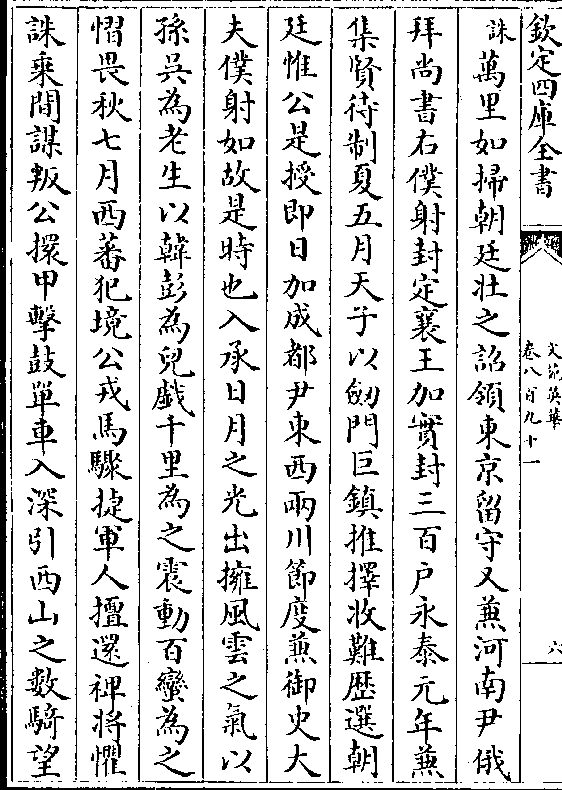 欽定四庫全書
文苑英華
卷八百九十一
六
誅萬里如掃朝廷壯之詔領東京留守又兼河南尹俄
拜尚書右僕射封定襄王加實封三百戶永泰元年兼
集賢待制夏五月天子以劒門巨鎮推擇收難歷選朝
廷惟公是授即日加成都尹東西兩川節度兼御史大
夫僕射如故是時也入承日月之光出擁風雲之氣以
孫吳為老生以韓彭為兒戲千里為之震動百蠻為之
慴畏秋七月西蕃犯境公戎馬驟捷軍人擅還裨將懼
誅乘間謀叛公擐甲擊鼓單車入深引西山之數騎望